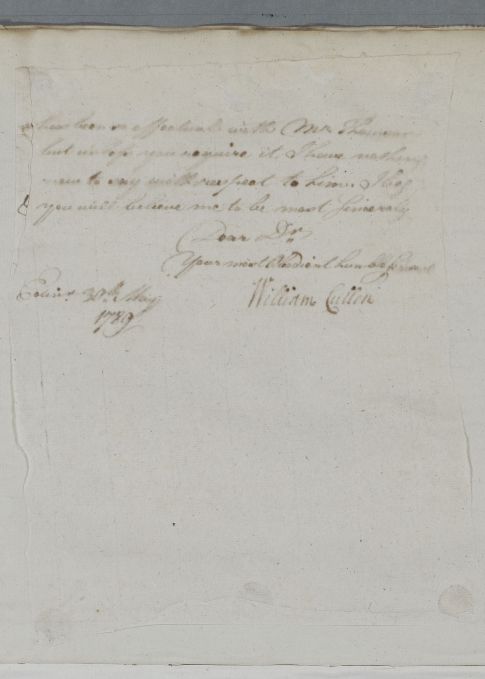 has been so effectual with Mr Thomson
but unless you require it I have nothing
new to say with respect to him. I beg
you will believe me to be most sincerely
Dear Dr
Your most Obedient humble servant
Edinr 30th May
1789
William Cullen